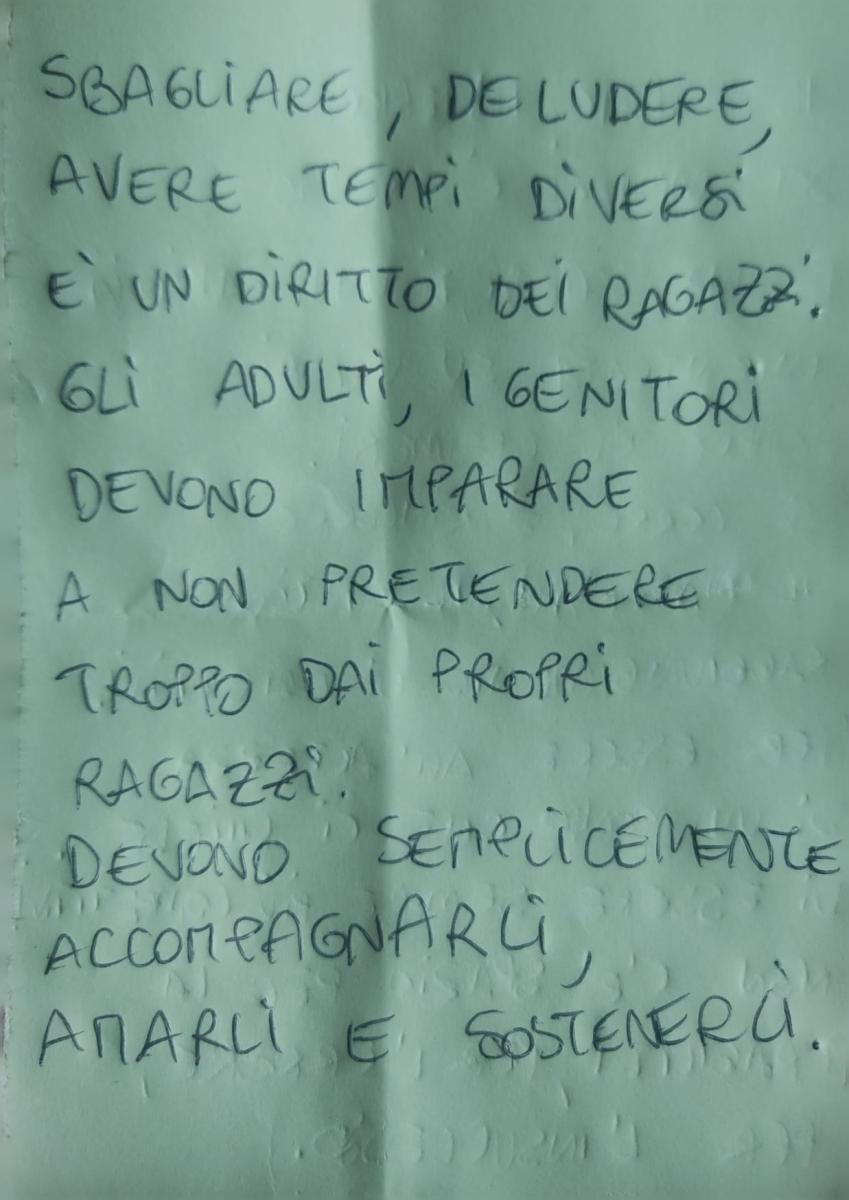 SBAGLIARE, DELUDERE,
AVERE TEMPI DIVERSI
E' UN DIRITTO DEI RAGAZZI.
GLI ADULTI, I GENITORI
DEVONO IMPARARE
A NON PRETENDERE
TROPPO DAI PROPRI
RAGAZZI.
DEVONO SEMPLICEMENTE
ACCOMPAGNARLI,
AMARLI E SOSTENERLI.